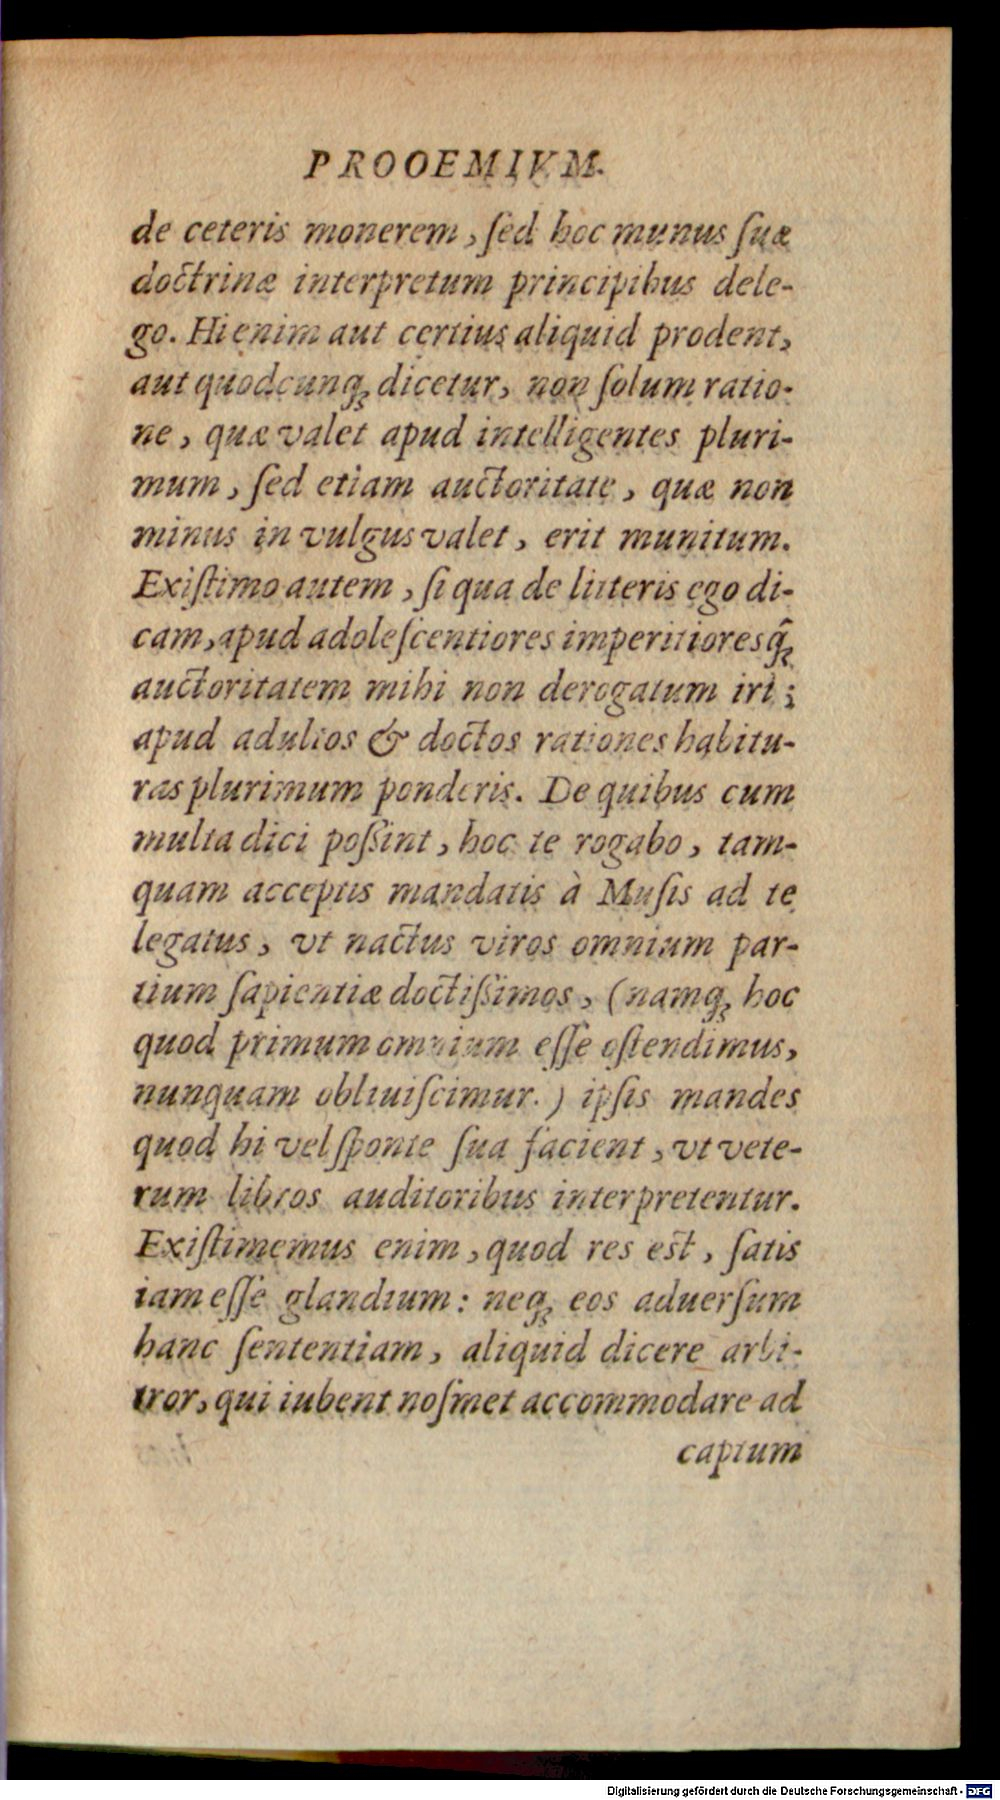 PROOEMIVM.
de ceteris monerem, ſed hoc munus ſuæ
doctrinæ interpretum principibus dele-
go. Hi enim aut certius aliquid prodent,
aut quodcunq; dicetur, non ſolum ratio-
ne, quæ valet apud intelligentes pluri-
mum, ſed etiam auctoritate, quæ non
minus in vulgus valet, erit munitum.
Exiſtimo autem, ſi qua de litteris ego di-
cam, apud adoleſcentiores imperitioresq́;
auctoritatem mihi non derogatum iri;
apud adultos & doctos rationes habitu-
ras plurimum ponderis. De quibus cum
multa dici poſſint, hoc te rogabo, tam-
quam acceptis mandatis à Muſis ad te
legatus, vt nactus viros omnium par-
tium ſapientiæ doctiſſimos, (namq; hoc
quod primum omnium eſſe oſtendimus,
nunquam obliuiſcimur.) ipſis mandes
quod hi vel ſponte ſua facient, vt vete-
rum libros auditoribus interpretentur.
Exiſtimemus enim, quod res est, ſatis
iam eſſe glandium: neq; eos aduerſum
hanc ſententiam, aliquid dicere arbi-
tror, qui iubent noſmet accommodare ad
captum
Digitalisierung gefördert durch die Deutsche Forschungsgemeinschaft - DFG